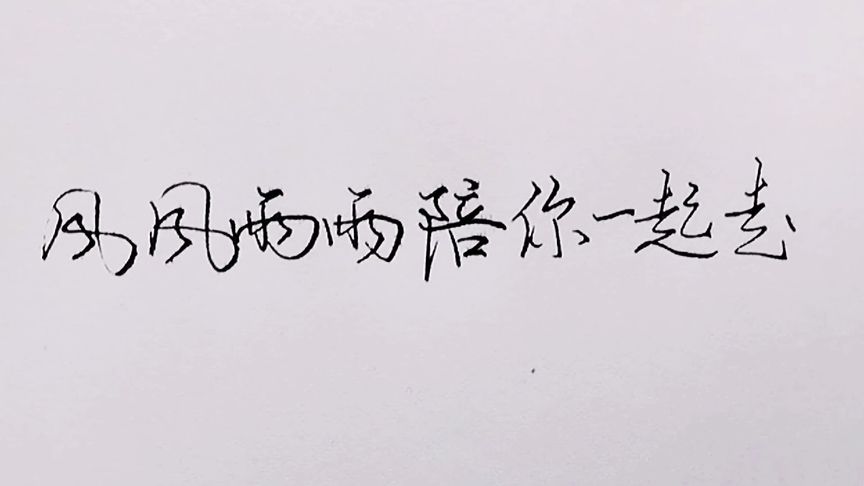 风风雨雨陪你一起走